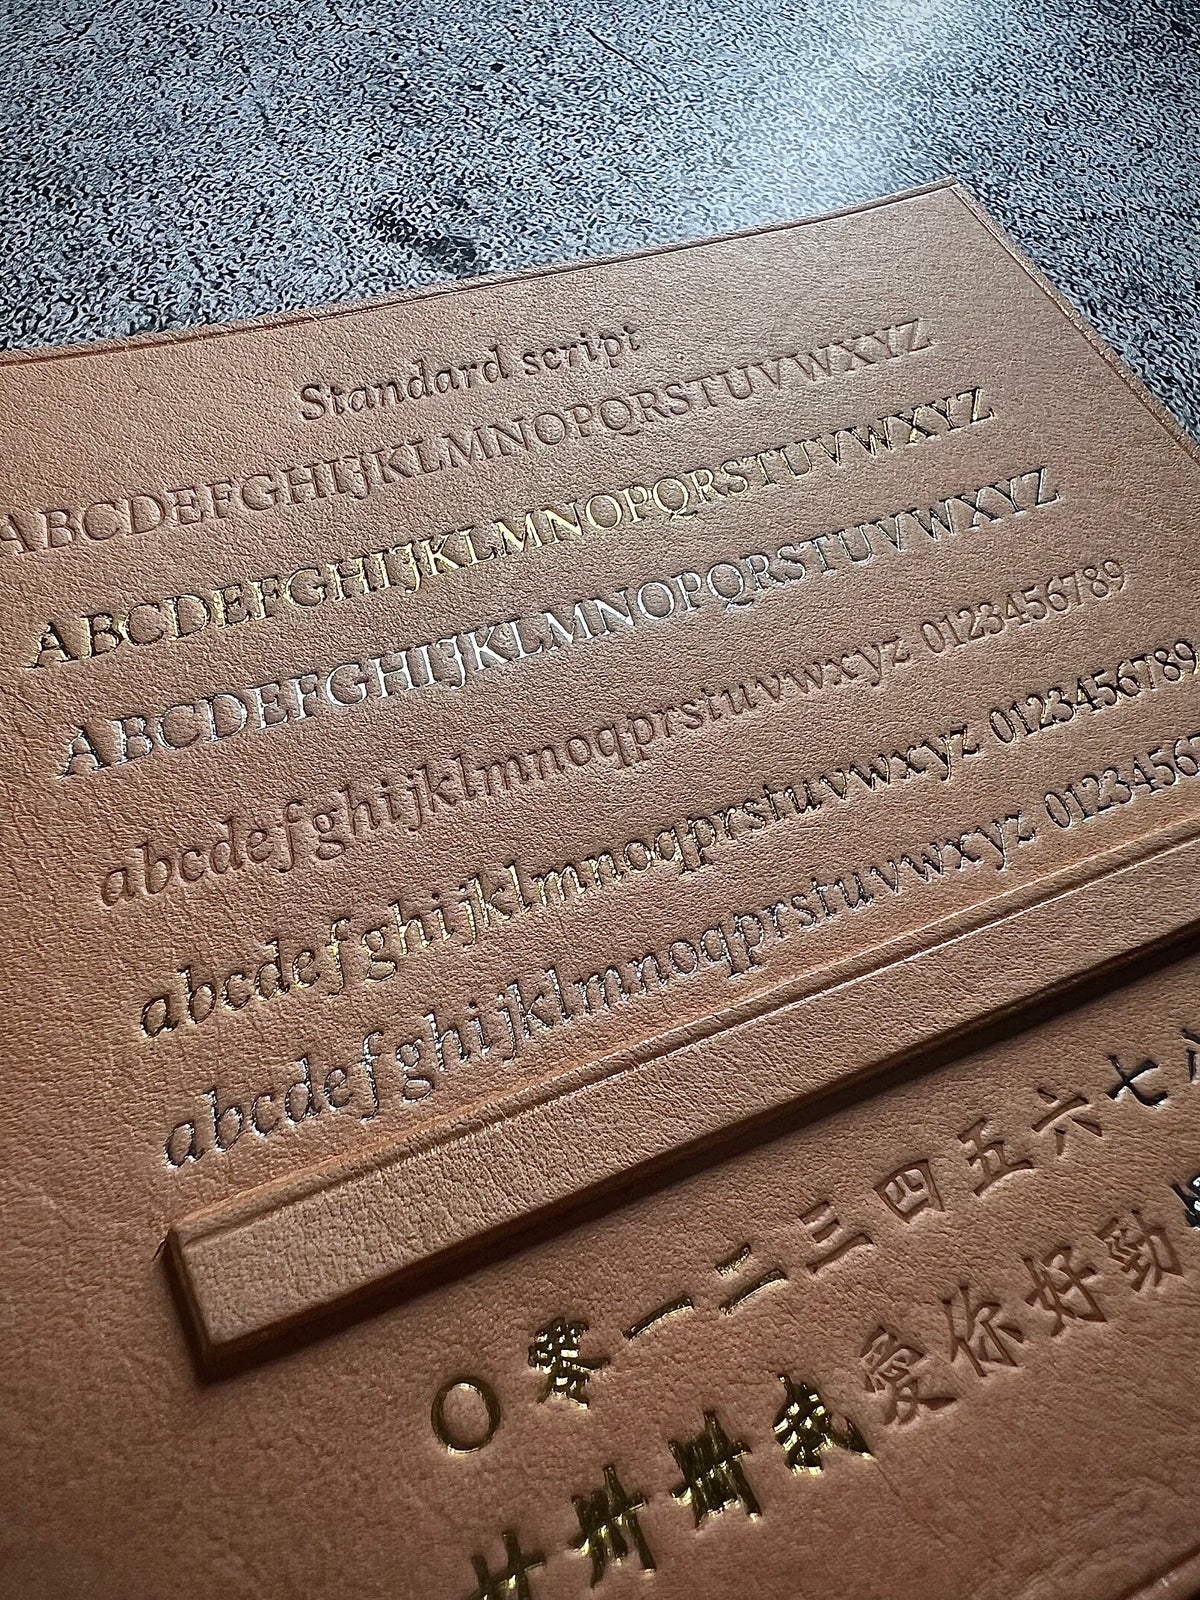 Standard script
ABCDEFGHIJKLMNOPQRSTUVWXYZ
ABCDEFGHIJKLMNOPQRSTUVWXYZ
ABCDEFGHIJKLMNOPQRSTUVWXYZ
abcdefghijklmnoqprstuvwxyz 0123456789
abcdefghijklmnoqprstuvwxyz 0123456789
abcdefghijklmnoqprstuvwxyz 01234567
〇零一二三四五六七
廿卅卌我愛你好勁